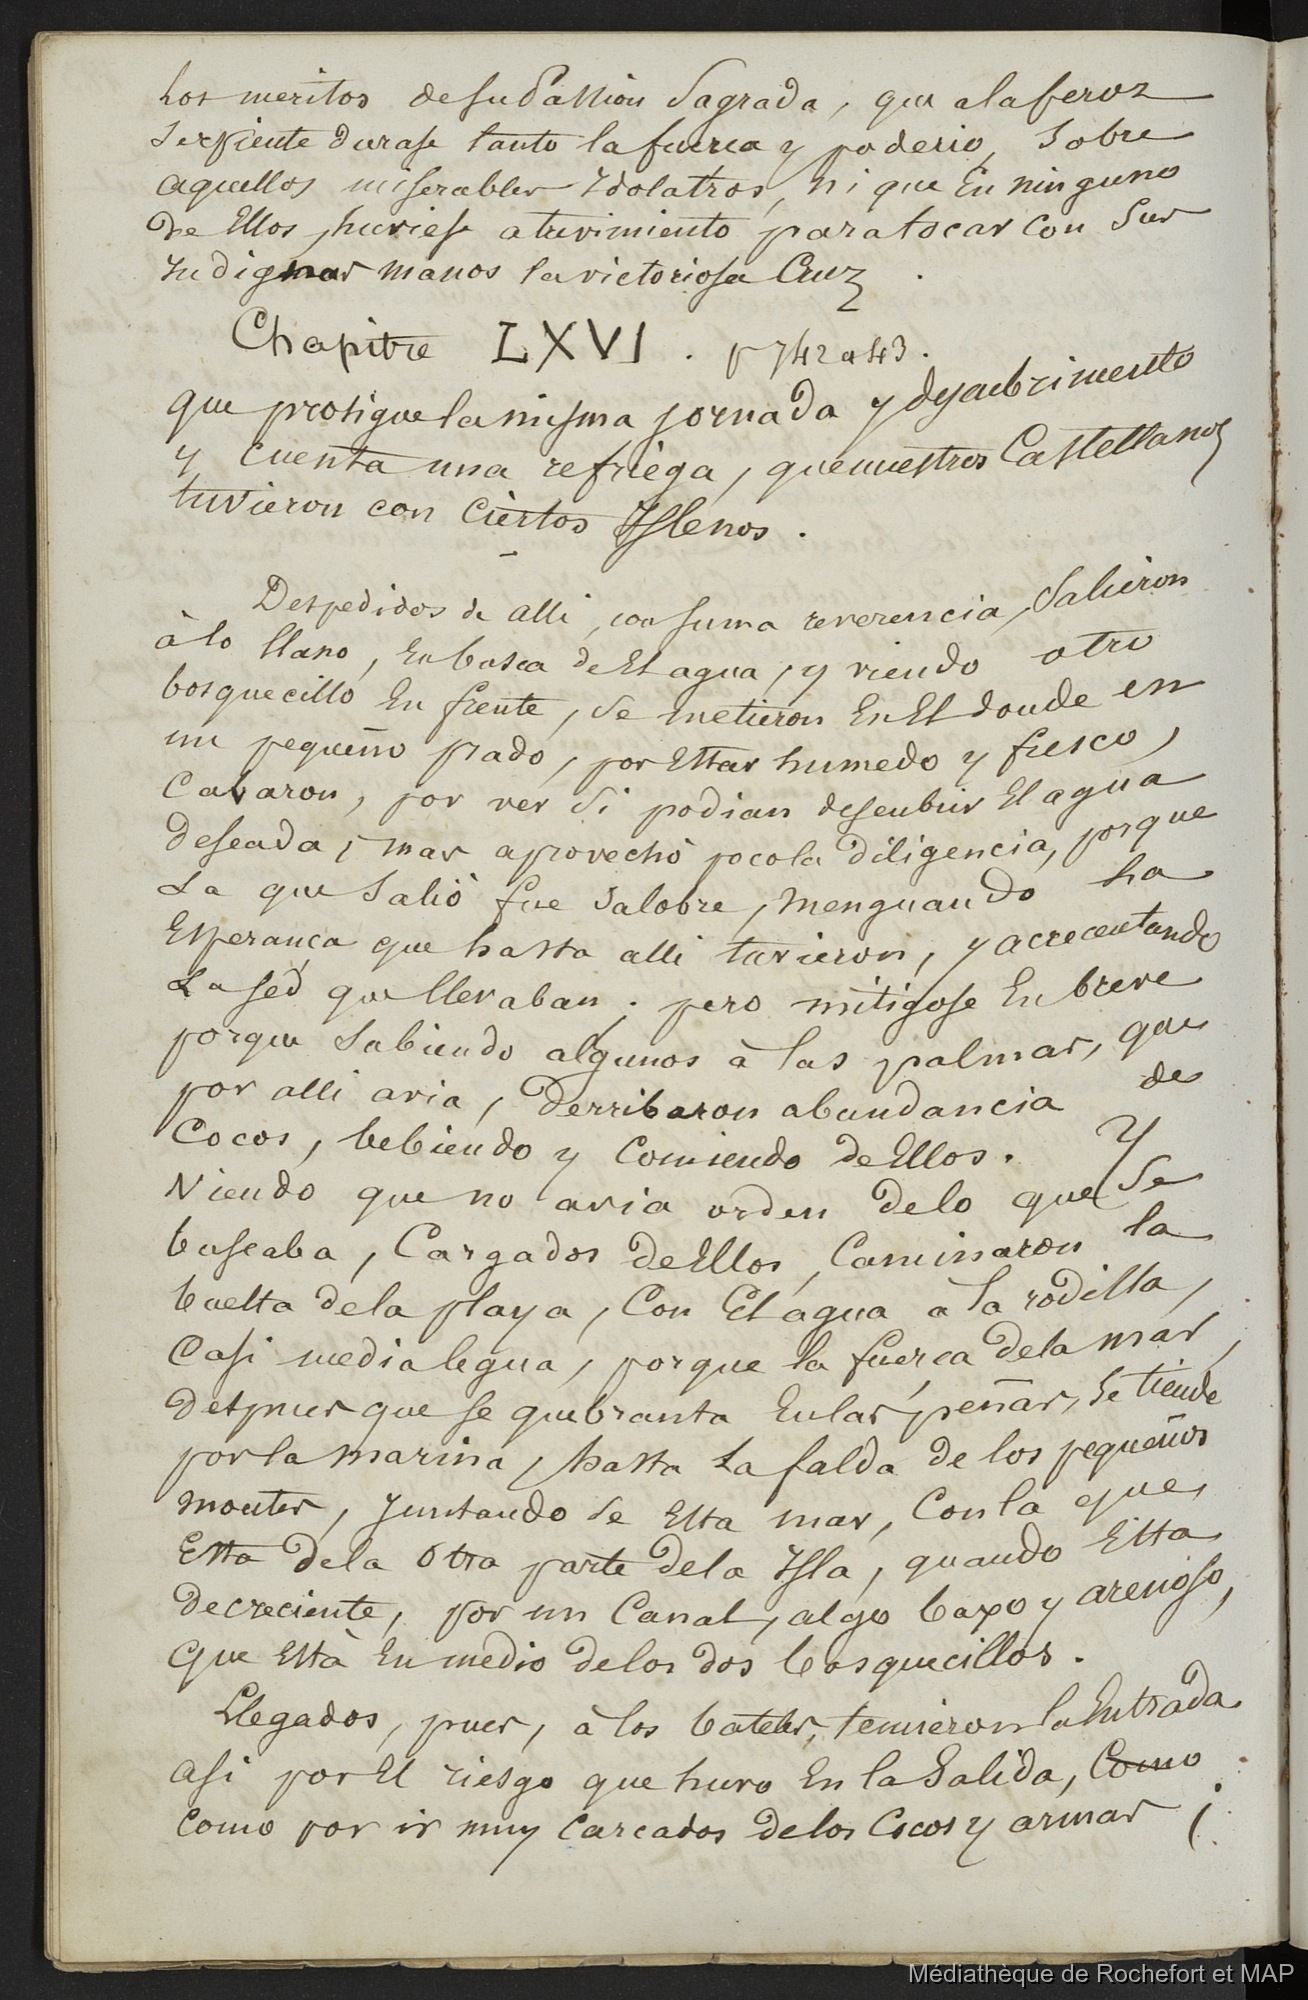 los meritos de su Passion Sagrada, que a la feroz
Serpiente durase tanto la fuerca y poderio, Sobre
aquellos miserables Ydolatros, ni que En ninguno
de Ellos huviese atrevimiento para tocar con Sus
Yndignas manos la victoriosa Cruz.
Chapitre LXVI. p 742 a 43.
que prosigue la misma jornada y descubrimiento
y cuenta una refriega, que nuestros Castellanos
tuvieron con Ciertos Yslenos.
Despedidos de alli, con suma reverencia, Salieron
à lo llano, En busca de El agua, y viendo otro
bosquecillo En frente, se metieron En El donde en
un pequeño prado, por Estar humedo y fresco,
Cavaron, por ver Si podian descubrir El agua
deseada; mas aprovechò poco la diligencia, porque
La que Saliò fue Salobre, menguando ha
Esperança que hasta alli tuvieron, y acrecentando
La sed que llevaban; pero mitigose En breve
porque Subiendo algunos à las palmas, que
por alli avia, derribaron abundancia de
Cocos, bebiendo y Comiendo de Ellos. Y
Viendo que no avia orden de lo que Se
buscaba, Cargados de Ellos, Caminaron la
buelta de la playa, Con El agua a la rodilla,
Casi media legua, porque la fuerça de la mar,
despues que se quebranta En las peñas, Se tiende
por la marina, hasta La falda de los pequeños
montes, Juntando se Esta mar, Con la que
Esta de la Otra parte de la Ysla, quando Esta
decreciente, por un Canal, algo baxo y arenoso,
que Està En medio de los dos bosquecillos.
Llegados, pues, à los bateles, temieron la Entrada
asi por El riesgo que huvo En la Salida, Como
como por ir muy Carcados de los Cocos y armas;
Médiathèque de Rochefort et MAP